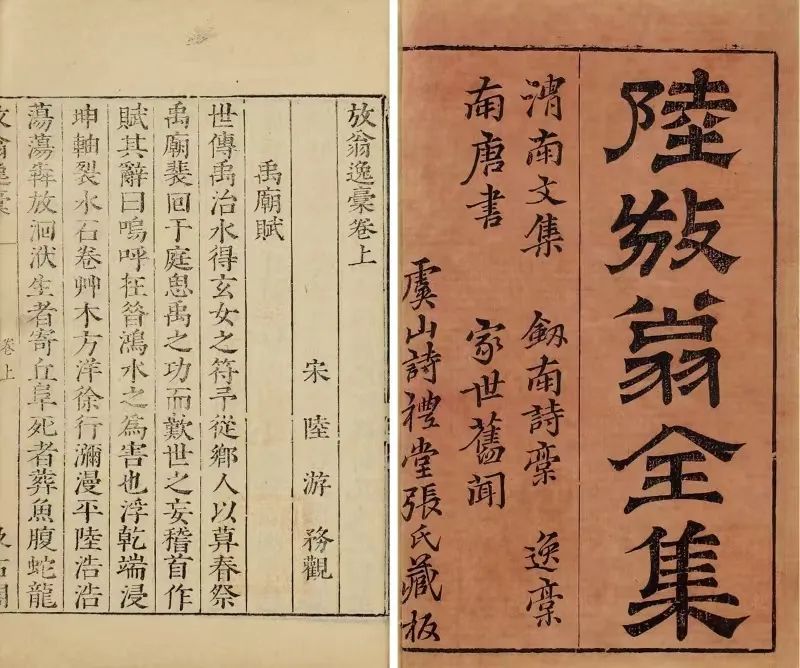 陸放翁全集
渭南文集 劔南詩稾 逸稾
南唐書 家世舊聞
虞山詩禮堂張氏藏板
放翁逸稾卷上
宋陸游務觀
禹廟賦
世傳禹治水得玄女之符予從鄉人以草春祭
禹廟裴囘于庭思禹之功而歎世之妄稽首作
賦其辭曰嗚呼在昝鴻水之為害也浮乾端浸
坤軸裂水石卷艸木方洋徐行瀰漫平陸浩浩
蕩蕩犇放洄洑生者寄丘阜死者葬魚腹蛇龍
卷上